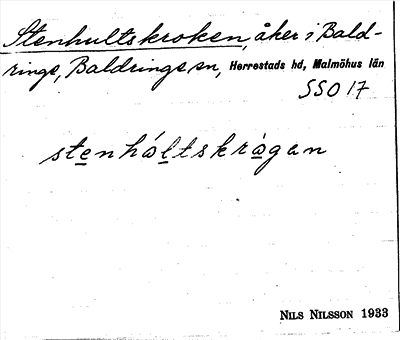 Stenhultskroken, åker i Bald-
rings, Baldrings sn, Herrestads hd, Malmöhus län
SSO 17
stenhåltskrågan
NILS NILSSON 1933